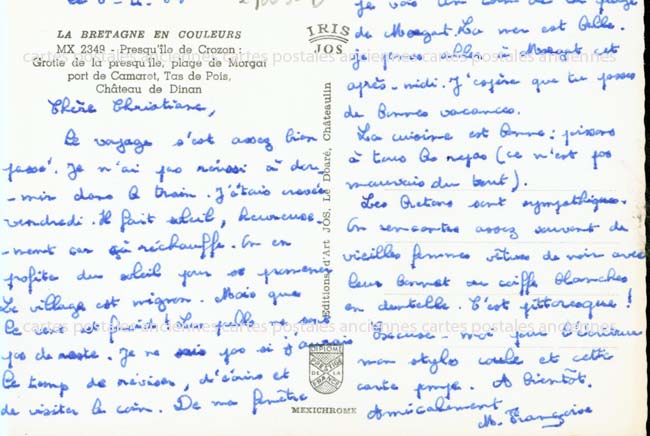 LA BRETAGNE EN COULEURS
MX 2349 - Presqu'île de Crozon :
Grotte de la presqu'île, plage de Morgat
port de Camaret, Tas de Pois,
Château de Dinan
IRIS
JOS
Editions d'Art JOS, Le Doaré, Châteaulin
DIPLOME PRESTIGE DE LA FRANCE
MEXICHROME
cartes postales anciennes cartes postales anciennes
cartes postales anciennes cartes postales anciennes
Chère Christiane,
Le voyage s'est assez bien
passé. Je n'ai pas réussi à dor-
-mir dans le train. J'étais crevée
vendredi. Il fait soleil, heureuse-
-ment car çà réchauffe. On en
profite du soleil pour se promener
Le village est mignon. Mais que
le
pas de reste. Je ne sais pas si j'aurais
le temps de réviser, d'écrire et
de visiter le coin. De ma fenêtre
je vois un coin de la plage
de Morgat. La mer est belle.
je pense aller à Morgat cet
après-midi. J'espère que tu passes
de bonnes vacances.
La cuisine est bonne : poisson
à tous les repas (ce n'est pas
mauvais du tout).
Les Bretons sont sympathiques.
On rencontre assez souvent de
vieilles femmes vêtues de noir avec
leur bonnet ou coiffe blanches
en dentelle. C'est pittoresque !
Excuse-moi pour l'écriture
mon stylo coule et cette
carte A bientôt.
Amicalement
M. Françoise